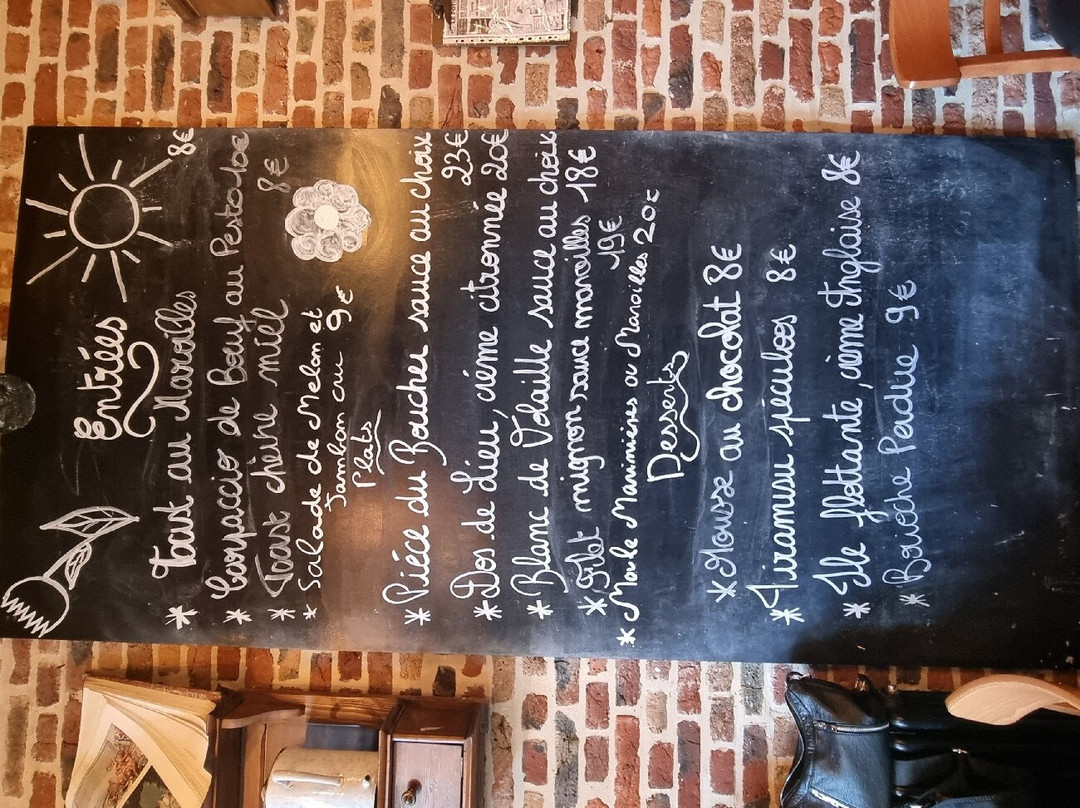 Entrées
* Tart au Maroilles 8€
* Carpaccio de Bœuf au Pesto 10€
* Toast chèvre miel 8€
* Salade de Melon et
Jambon cru 9€
Plats
* Pièce du Boucher sauce au choix
23€
* Dos de Lieu, crème citronnée 20€
* Blanc de Volaille sauce au choix
* Filet mignon sauce maroilles 18€
19€
* Moule Marinières ou Maroilles 20€
Desserts
* Mousse au chocolat 8€
* Tiramisu spéculoos 8€
* Ile flottante, crème Anglaise 8€
* Brioche Perdue 9€